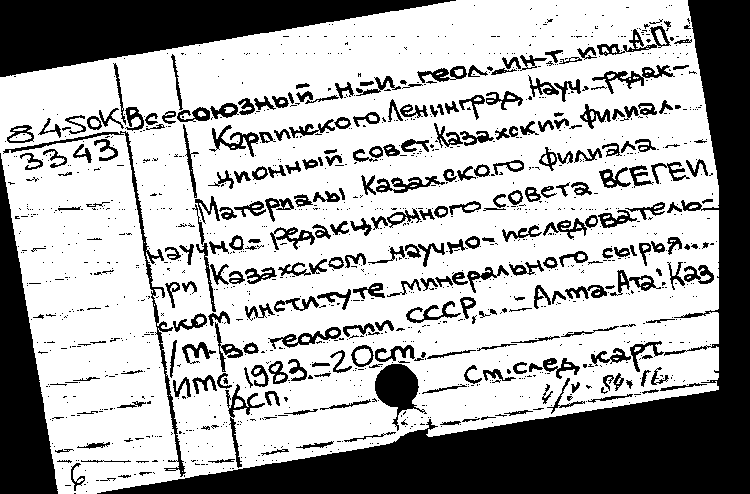 84-5OK
3343
Всесоюзный н.-и. геол. ин-т им. А.П.
Карпинского. Ленинград. Науч.-редак-
ционный совет. Казахский филиал.
Материалы Казахского филиала
научно-редакционного совета ВСЕГЕИ
при Казахском научно-исследователь-
ском институте минерального сырья...
/М-во геологии СССР,... - Алма-Ата: Каз
ИМС, 1983.-20см.
ДСП.
См. след. карт
6